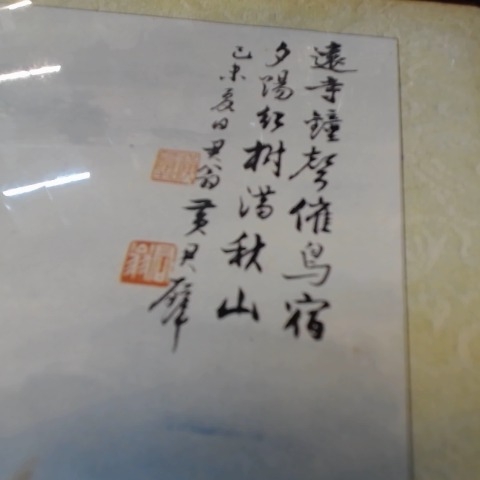 遠寺鐘聲催鳥宿
夕陽紅樹滿秋山
己未夏日君翁黃君璧